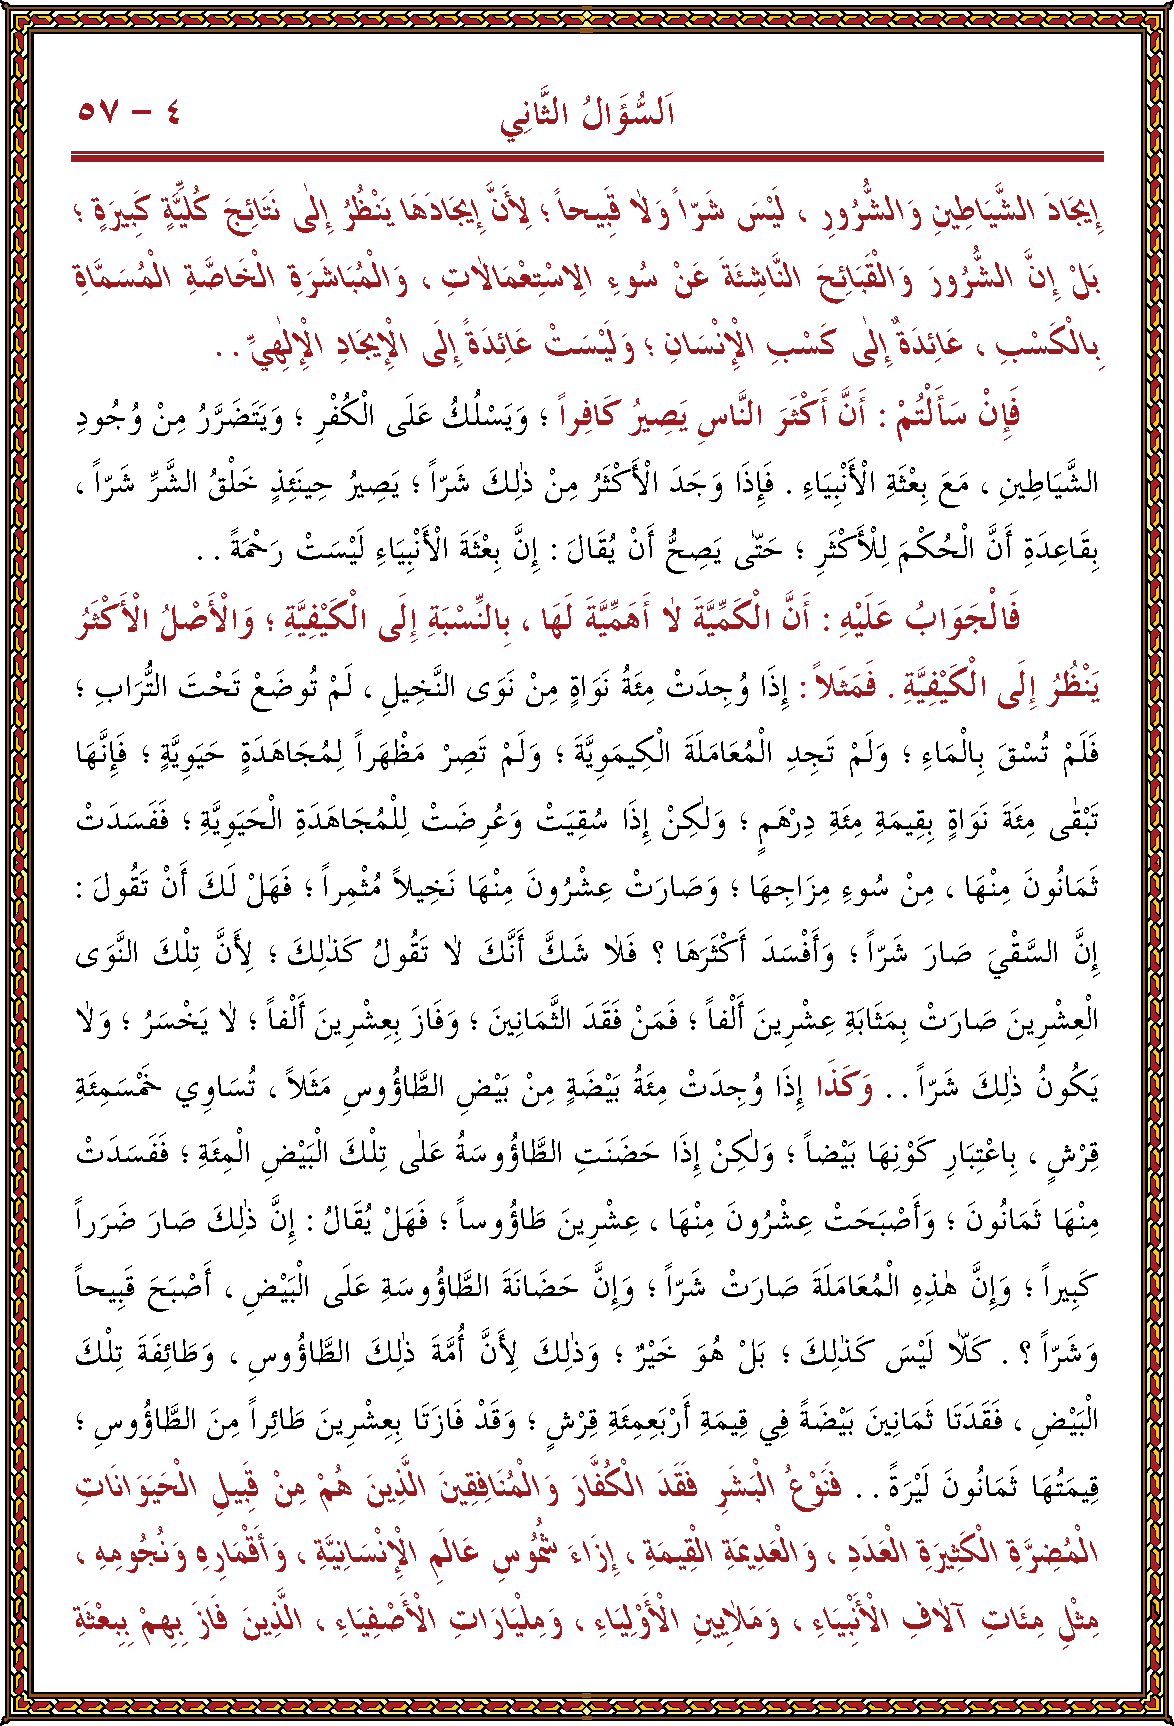 اَلسُّؤَالُ الثَّانِي
٤ - ٥٧
إِيجَادَ الشَّيَاطِينِ وَالشُّرُورِ ، لَيْسَ شَرّاً وَلاٰ قَبِيحاً ؛ لِأَنَّ إِيجَادَهَا يَنْظُرُ إِلٰى نَتَائِجَ كُلِّيَّةٍ كَبِيرَةٍ ؛
بَلْ إِنَّ الشُّرُورَ وَالْقَبَائِحَ النَّاشِئَةَ عَنْ سُوءِ الِاسْتِعْمَالاٰتِ ، وَالْمُبَاشَرَةِ الْخَاصَّةِ الْمُسَمَّاةِ
بِالْكَسْبِ ، عَائِدَةٌ إِلٰى كَسْبِ الْإِنْسَانِ ؛ وَلَيْسَتْ عَائِدَةً إِلَى الْإِيجَادِ الْإِلٰهِيِّ . .
فَإِنْ سَأَلْتُمْ : أَنَّ أَكْثَرَ النَّاسِ يَصِيرُ كَافِراً ؛ وَيَسْلُكُ عَلَى الْكُفْرِ ؛ وَيَتَضَرَّرُ مِنْ وُجُودِ
الشَّيَاطِينِ ، مَعَ بِعْثَةِ الْأَنْبِيَاءِ . فَإِذَا وَجَدَ الْأَكْثَرُ مِنْ ذٰلِكَ شَرّاً ؛ يَصِيرُ حِينَئِذٍ خَلْقُ الشَّرِّ شَرّاً ،
بِقَاعِدَةِ أَنَّ الْحُكْمَ لِلْأَكْثَرِ ؛ حَتّٰى يَصِحُّ أَنْ يُقَالَ : إِنَّ بِعْثَةَ الْأَنْبِيَاءِ لَيْسَتْ رَحْمَةً . .
فَالْجَوَابُ عَلَيْهِ : أَنَّ الْكَمِّيَّةَ لاٰ أَهَمِّيَّةَ لَهَا ، بِالنِّسْبَةِ إِلَى الْكَيْفِيَّةِ ؛ وَالْأَصْلُ الْأَكْثَرُ
يَنْظُرُ إِلَى الْكَيْفِيَّةِ . فَمَثَلاً : إِذَا وُجِدَتْ مِئَةُ نَوَاةٍ مِنْ نَوَى النَّخِيلِ ، لَمْ تُوضَعْ تَحْتَ التُّرَابِ ؛
فَلَمْ تُسْقَ بِالْمَاءِ ؛ وَلَمْ تَجِدِ الْمُعَامَلَةَ الْكِيمَوِيَّةَ ؛ وَلَمْ تَصِرْ مَظْهَراً لِمُجَاهَدَةٍ حَيَوِيَّةٍ ؛ فَإِنَّهَا
تَبْقٰى مِئَةَ نَوَاةٍ بِقِيمَةِ مِئَةِ دِرْهَمٍ ؛ وَلٰكِنْ إِذَا سُقِيَتْ وَعُرِضَتْ لِلْمُجَاهَدَةِ الْحَيَوِيَّةِ ؛ فَفَسَدَتْ
ثَمَانُونَ مِنْهَا ، مِنْ سُوءِ مِزَاجِهَا ؛ وَصَارَتْ عِشْرُونَ مِنْهَا نَخِيلاً مُثْمِراً ؛ فَهَلْ لَكَ أَنْ تَقُولَ :
إِنَّ السَّقْيَ صَارَ شَرّاً ؛ وَأَفْسَدَ أَكْثَرَهَا ؟ فَلاٰ شَكَّ أَنَّكَ لاٰ تَقُولُ كَذٰلِكَ ؛ لِأَنَّ تِلْكَ النَّوَى
الْعِشْرِينَ صَارَتْ بِمَثَابَةِ عِشْرِينَ أَلْفاً ؛ فَمَنْ فَقَدَ الثَّمَانِينَ ؛ وَفَازَ بِعِشْرِينَ أَلْفاً ؛ لاٰ يَخْسَرُ ؛ وَلاٰ
يَكُونُ ذٰلِكَ شَرّاً . . وَكَذَا إِذَا وُجِدَتْ مِئَةُ بَيْضَةٍ مِنْ بَيْضِ الطَّاؤُوسِ مَثَلاً ، تُسَاوِي خَمْسَمِئَةِ
قِرْشٍ ، بِاعْتِبَارِ كَوْنِهَا بَيْضاً ؛ وَلٰكِنْ إِذَا حَضَنَتِ الطَّاؤُوسَةُ عَلٰى تِلْكَ الْبَيْضِ الْمِئَةِ ؛ فَفَسَدَتْ
مِنْهَا ثَمَانُونَ ؛ وَأَصْبَحَتْ عِشْرُونَ مِنْهَا ، عِشْرِينَ طَاؤُوساً ؛ فَهَلْ يُقَالُ : إِنَّ ذٰلِكَ صَارَ ضَرَراً
كَبِيراً ؛ وَإِنَّ هٰذِهِ الْمُعَامَلَةَ صَارَتْ شَرّاً ؛ وَإِنَّ حَضَانَةَ الطَّاؤُوسَةِ عَلَى الْبَيْضِ ، أَصْبَحَ قَبِيحاً
وَشَرّاً ؟ . كَلاّٰ لَيْسَ كَذٰلِكَ ؛ بَلْ هُوَ خَيْرٌ ؛ وَذٰلِكَ لِأَنَّ أُمَّةَ ذٰلِكَ الطَّاؤُوسِ ، وَطَائِفَةَ تِلْكَ
الْبَيْضِ ، فَقَدَتَا ثَمَانِينَ بَيْضَةً فِي قِيمَةِ أَرْبَعِمِئَةِ قِرْشٍ ؛ وَقَدْ فَازَتَا بِعِشْرِينَ طَائِراً مِنَ الطَّاؤُوسِ ؛
قِيمَتُهَا ثَمَانُونَ لَيْرَةً . . فَنَوْعُ الْبَشَرِ فَقَدَ الْكُفَّارَ وَالْمُنَافِقِينَ الَّذِينَ هُمْ مِنْ قَبِيلِ الْحَيَوَانَاتِ
الْمُضِرَّةِ الْكَثِيرَةِ الْعَدَدِ ، وَالْعَدِيمَةِ الْقِيمَةِ ، إِزَاءَ شُمُوسِ عَالَمِ الْإِنْسَانِيَّةِ ، وَأَقْمَارِهِ وَنُجُومِهِ ،
مِثْلِ مِئَاتِ آلاٰفِ الْأَنْبِيَاءِ ، وَمَلاٰيِينِ الْأَوْلِيَاءِ ، وَمِلْيَارَاتِ الْأَصْفِيَاءِ ، الَّذِينَ فَازَ بِهِمْ بِبِعْثَةِ